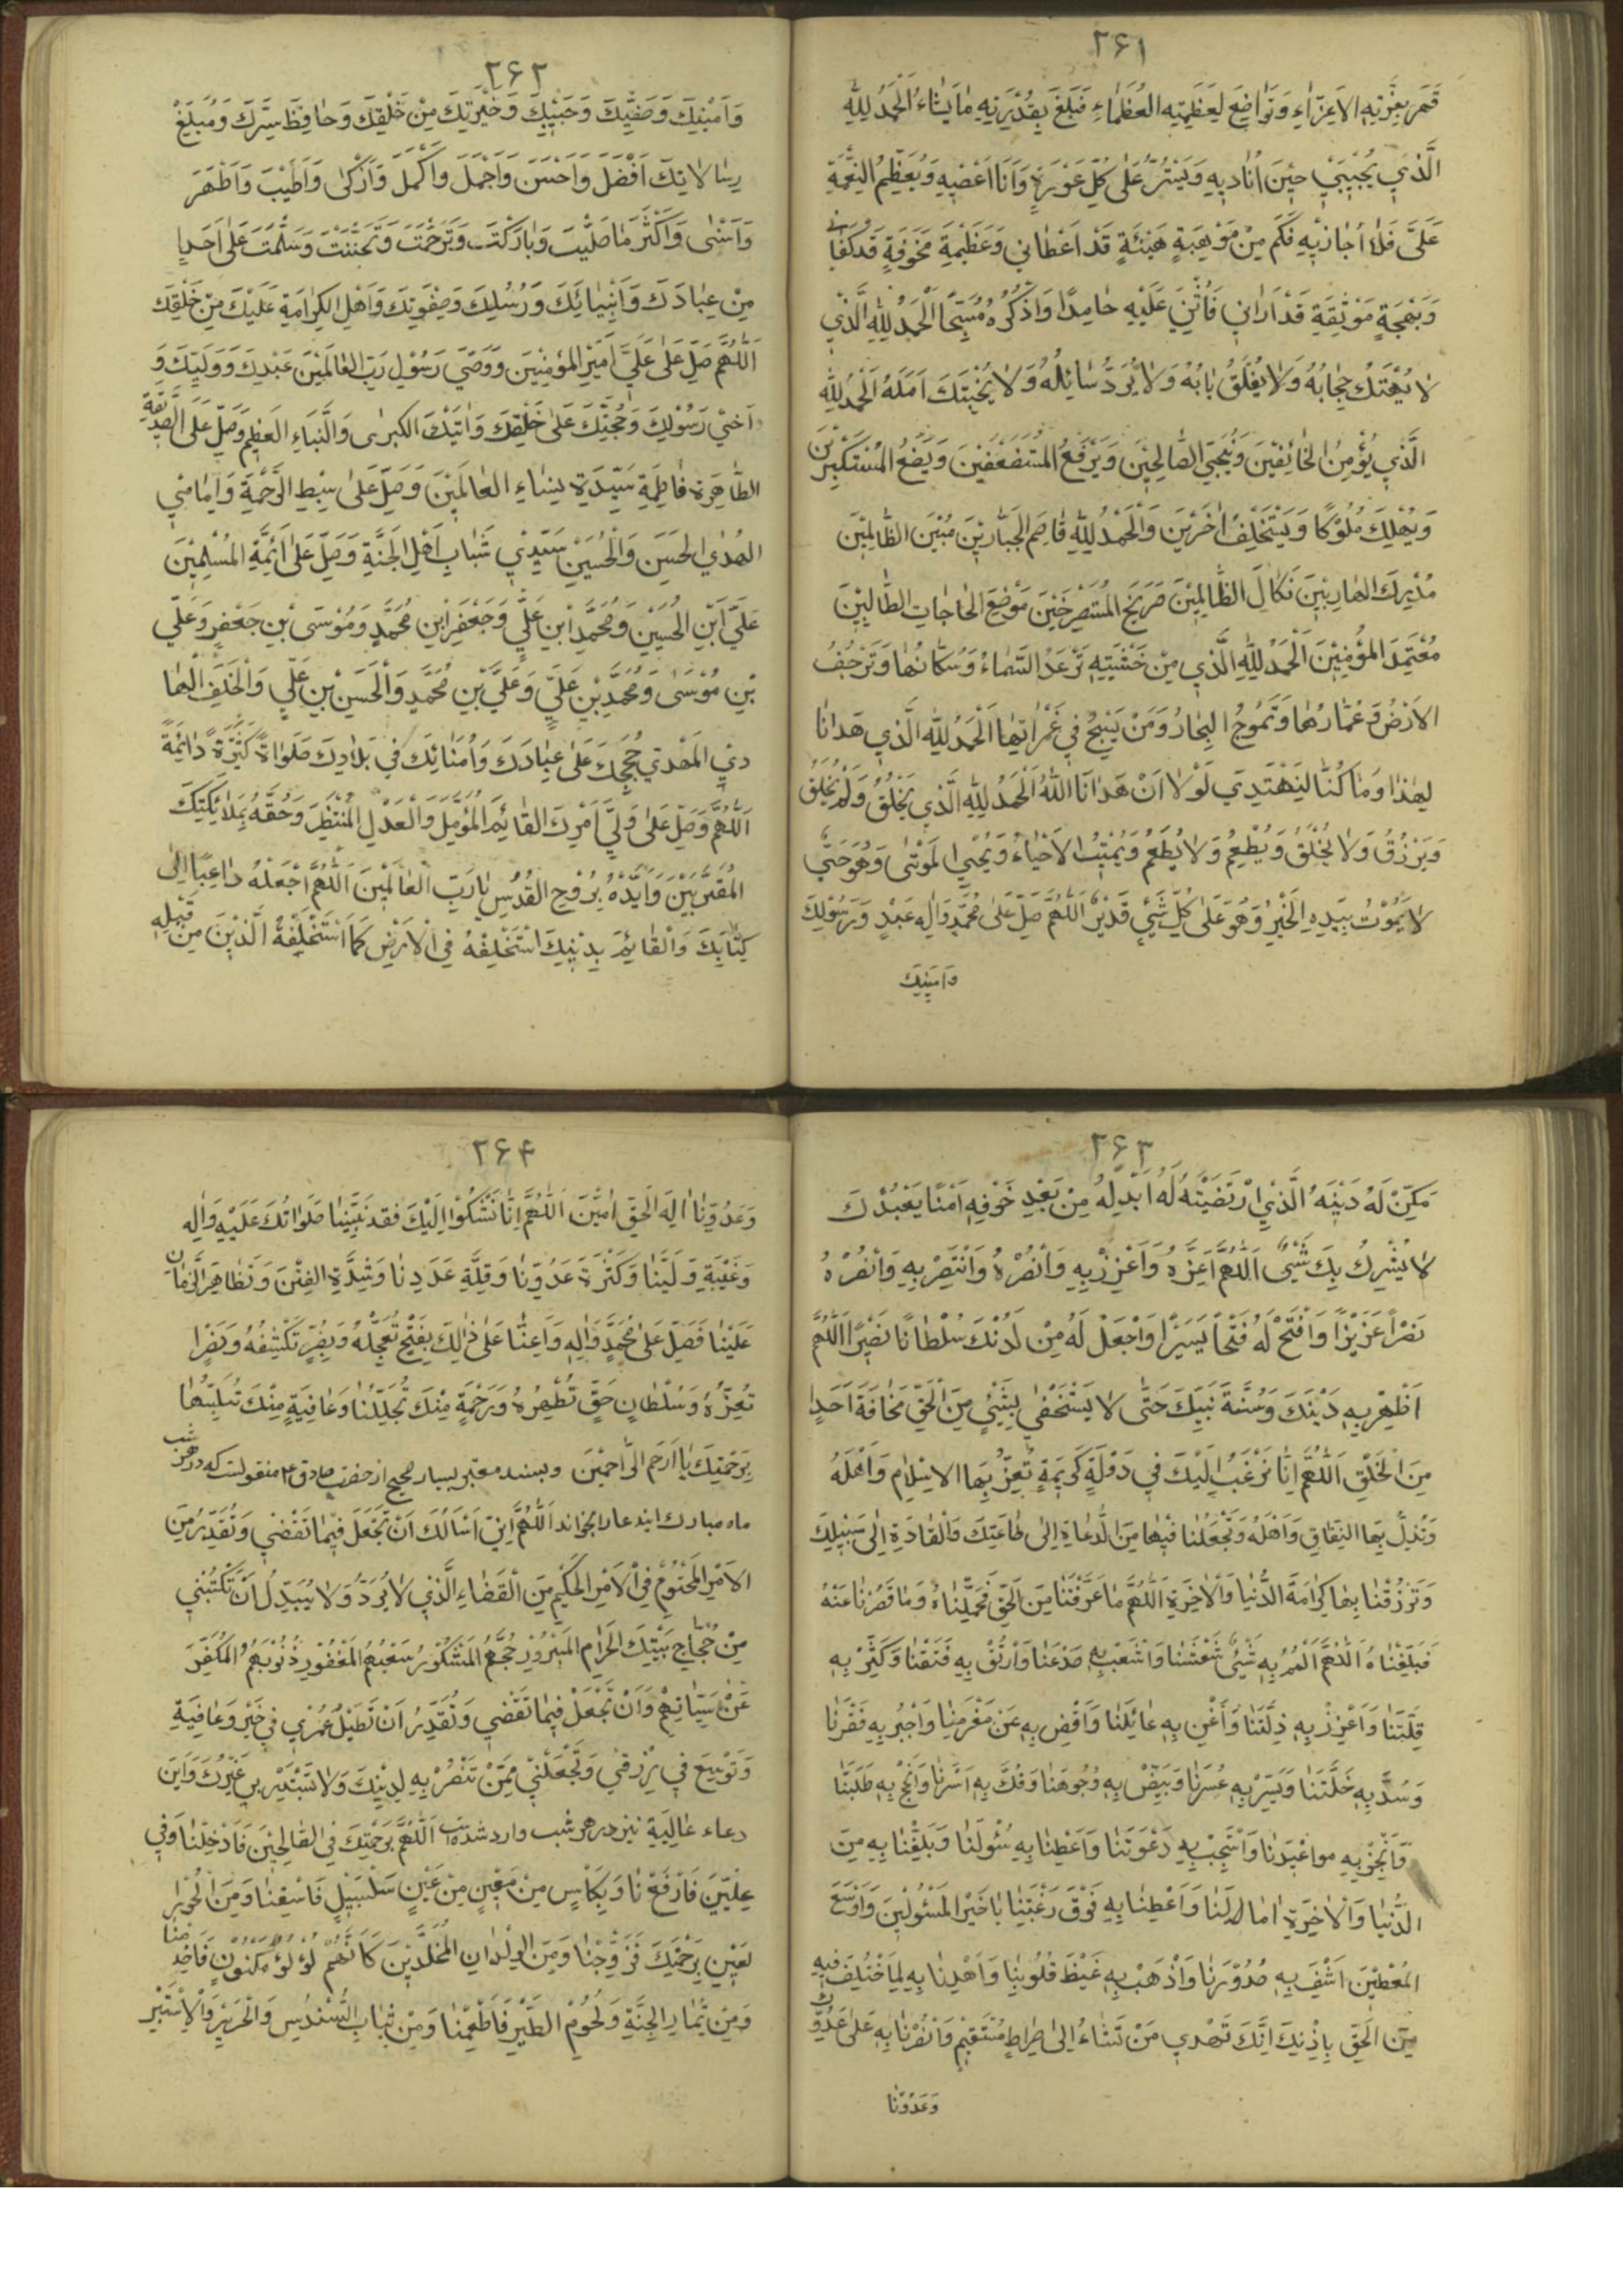 ۲۶۱
قَهَرَ بِعِزَّتِهِ الاَعِزّاءِ وَتَواضَعَ لِعَظَمَتِهِ العُظَماءِ فَبَلَغَ بِقُدْرَتِهِ مايَشاءُ اَلْحَمْدُ لِلّهِ
الَّذي يُجيبُني حينَ اُناديهِ وَيَسْتُرُ عَلى كُلِّ عَوْرَةٍ وَاَنَا اَعْصيهِ وَيُعَظِّمُ النِّعْمَةِ
عَلَيَّ فَلا اُجازيهِ فَكَم مِنْ مَوْهِبَةٍ هَنيئَةٍ قَدْ اَعْطاني وَعَظيمَةٍ مَخُوفَةٍ قَدْ كَفاني
وَبَهْجَةٍ مَوْنِقَةٍ قَدْ اَراني فَاُثْني عَلَيْهِ حامِدًا وَاَذْكُرُهُ مُسَبِّحًا اَلْحَمْدُ لِلّهِ الَّذي
لا يُهْتَكُ حِجابُهُ وَلا يُغْلَقُ بابُهُ وَلا يُرَدُّ سائِلُهُ وَلا يُخَيَّبُكَ اَمَلَهُ اَلْحَمْدُ لِلّهِ
الَّذي يُؤْمِنُ الخائِفينَ وَيُنَجِّي الصّالِحينَ وَيَرْفَعُ المُسْتَضْعَفينَ وَيَضَعُ المُسْتَكْبِرينَ
وَيُهْلِكَ مُلُوكًا وَيَسْتَخْلِفُ اخَرينَ وَالْحَمْدُ لِلّهِ قاصِمِ الجَبّارينَ مُبينَ الظّالِمينَ
مُدْرِكَ الهارِبينَ نَكالَ الظّالِمينَ صَريخَ المُسْتَصْرِخينَ مَوْضِعَ الحاجاتِ الطّالِبينَ
مُعْتَمَدَ المُؤْمِنينَ اَلْحَمْدُ لِلّهِ الَّذي مِنْ خَشْيَتِهِ تَرْعَدُ السَّماءُ وَسُكّانُها وَتَرْجُفُ
الاَرْضُ وَعُمّارُها وَتَمُوجُ البِحارُ وَمَنْ يَسْبَحُ في غَمَراتِها اَلْحَمْدُ لِلّهِ الَّذي هَدانا
لِهذا وَما كُنّا لِنَهْتَدِيَ لَوْلا اَنْ هَدانَا اللّهُ اَلْحَمْدُ لِلّهِ الَّذي يَخْلُقُ وَلَمْ يُخْلَقْ
وَيَرْزُقُ وَلا يُخْلَقُ وَيُطْعِمُ وَلا يُطْعَمُ وَيُميتُ الاَحْياءُ وَيُحْيِي المَوْتى وَهُوَ حَيٌّ
لا يَمُوتُ بِيَدِهِ الخَيْرُ وَهُوَ عَلى كُلِّ شَيْءٍ قَديرٌ اَللّهُمَّ صَلِّ عَلى مُحَمَّدٍ وَالِهِ عَبْدٍ وَرَسُولِكَ
وَاَمينِكَ
۲۶۲
وَاَمينِكَ وَصَفِيِّكَ وَحَبيبِكَ وَخِيَرَتِكَ مِنْ خَلْقِكَ وَحافِظَ سِرِّكَ وَمُبَلِّغْ
رِسالاتِكَ اَفْضَلَ وَاَحْسَنَ وَاَجْمَلَ وَاَكْمَلَ وَاَزْكى وَاَطْيَبَ وَاَطْهَرَ
وَاَسْنى وَاَكْثَرَ ما صَلَّيْتَ وَبارَكْتَ وَتَرَحَّمْتَ وَتَحَنَّنْتَ وَسَلَّمْتَ عَلى اَحَدٍ
مِنْ عِبادِكَ وَاَنْبِيائِكَ وَرُسُلِكَ وَصِفْوَتِكَ وَاَهْلِ الكَرامَةِ عَلَيْكَ مِنْ خَلْقِكَ
اَللّهُمَّ صَلِّ عَلى عَلِيٍّ اَميرِ المُؤْمِنينَ وَوَصِيِّ رَسُولِ رَبِّ العالَمينَ عَبْدِكَ وَوَلِيِّكَ وَ
اَخي رَسُولِكَ وَحُجَّتِكَ عَلى خَلْقِكَ وَايَتِكَ الكُبْرى وَالنَّبَاءِ العَظيمِ وَصَلِّ عَلَى الصِّدّيقَةِ
الطّاهِرَةِ فاطِمَةِ سَيِّدَةِ نِساءِ العالَمينَ وَصَلِّ عَلى سِبْطِ الرَّحْمَةِ وَاِمامَيِ
الهُدى الحَسَنِ وَالْحُسَيْنِ سَيِّدَيْ شَبابِ اَهْلِ الجَنَّةِ وَصَلِّ عَلى اَئِمَّةِ المُسْلِمينَ
عَلِيِّ ابْنِ الحُسَيْنِ وَمُحَمَّدِ ابْنِ عَلِيٍّ وَجَعْفَرِ ابْنِ مُحَمَّدٍ وَمُوسَى بْنِ جَعْفَرٍ وَعَلِيِّ
بْنِ مُوسى وَمُحَمَّدِ بْنِ عَلِيٍّ وَعَلِيِّ بْنِ مُحَمَّدٍ وَالْحَسَنِ بْنِ عَلِيٍّ وَالْخَلَفِ الْها
دي المَهْدي حُجَجِكَ عَلى عِبادِكَ وَاُمَنائِكَ في بِلادِكَ صَلَواةً كَثيرَةً دائِمَةً
اَللّهُمَّ وَصَلِّ عَلى وَلِيِّ اَمْرِكَ القائِمِ المُؤَمَّلِ وَالْعَدْلِ المُنْتَظَرِ وَحُفَّهُ بِمَلائِكَتِكَ
المُقَرَّبينَ وَاَيِّدْهُ بِرُوحِ القُدُسِ يا رَبَّ العالَمينَ اَللّهُمَّ اجْعَلْهُ داعِيًا اِلى
كِتابِكَ وَالْقائِمَ بِدينِكَ اسْتَخْلِفْهُ فِي الاَرْضِ كَمَا اسْتَخْلَفْتَ الَّذينَ مِنْ قَبْلِهِ
۲۶۳
مَكِّنْ لَهُ دينَهُ الَّذي ارْتَضَيْتَهُ لَهُ اَبْدِلْهُ مِنْ بَعْدِ خَوْفِهِ اَمْنًا يَعْبُدُكَ
لا يُشْرِكُ بِكَ شَيْئًا اَللّهُمَّ اَعِزَّهُ وَاَعْزِزْ بِهِ وَانْصُرْهُ وَانْتَصِرْ بِهِ وَانْصُرْهُ
نَصْرًا عَزيزًا وَافْتَحْ لَهُ فَتْحًا يَسيرًا وَاجْعَلْ لَهُ مِنْ لَدُنْكَ سُلْطانًا نَصيرًا اَللّهُمَّ
اَظْهِرْ بِهِ دينَكَ وَسُنَّةَ نَبِيِّكَ حَتّى لا يَسْتَخْفي بِشَيْءٍ مِنَ الْحَقِّ مَخافَةَ اَحَدٍ
مِنَ الْخَلْقِ اَللّهُمَّ اِنّا نَرْغَبُ اِلَيْكَ في دَوْلَةٍ كَريمَةٍ تُعِزُّ بِهَا الاِسْلامِ وَاَهْلَهُ
وَتُذِلُّ بِهَا النِّفاقِ وَاَهْلَهُ وَتَجْعَلُنا فيها مِنَ الدُّعاةِ اِلى طاعَتِكَ وَالْقادَةِ اِلى سَبيلِكَ
وَتَرْزُقُنا بِها كَرامَةَ الدُّنْيا وَالاخِرَةِ اَللّهُمَّ ما عَرَّفْتَنا مِنَ الحَقِّ فَحَمِّلْناهُ وَما قَصُرْنا عَنْهُ
فَبَلِّغْناهُ اَللّهُمَّ الْمُمْ بِهِ شَعْثَنا وَاشْعَبْ بِهِ صَدْعَنا وَارْتُقْ بِهِ فَتْقَنا وَكَثِّرْ بِهِ
قِلَّتَنا وَاَعْزِزْ بِهِ ذِلَّتَنا وَاَغْنِ بِهِ عائِلَنا وَاقْضِ بِهِ عَنْ مَغْرَمِنا وَاجْبُرْ بِهِ فَقْرَنا
وَسُدَّ بِهِ خَلَّتَنا وَيَسِّرْ بِهِ عُسْرَنا وَبَيِّضْ بِهِ وُجُوهَنا وَفُكَّ بِهِ اَسْرَنا وَاَنْجِحْ بِهِ طَلَبَنا
وَاَنْجِزْ بِهِ مواعيدَنا وَاسْتَجِبْ بِهِ دَعْوَتَنا وَاَعْطِنا بِهِ سُئُولَنا وَبَلِّغْنا بِهِ مِنَ
الدُّنْيا وَالاخِرَةِ امالَنا وَاَعْطِنا بِهِ فَوْقَ رَغْبَتِنا يا خَيْرَ المَسْئُولينَ وَاَوْسَعَ
المُعْطينَ اشْفِ بِهِ صُدُورَنا وَاَذْهِبْ بِهِ غَيْظَ قُلُوبِنا وَاهْدِنا بِهِ لِمَا اخْتُلِفَ فيهِ
مِنَ الحَقِّ بِاِذْنِكَ اِنَّكَ تَهْدي مَنْ تَشاءُ اِلى صِراطٍ مُسْتَقيمٍ وَانْصُرْنا بِهِ عَلى عَدُوِّكَ
وَعَدُوِّنا
۲۶۴
وَعَدُوِّنا اِلهَ الحَقِّ امينَ اَللّهُمَّ اِنّا نَشْكُوا اِلَيْكَ فَقْدَ نَبِيِّنا صَلَواتُكَ عَلَيْهِ وَالِهِ
وَغَيْبَةِ وَلِيِّنا وَكَثْرَةَ عَدُوِّنا وَقِلَّةِ عَدَدِنا وَشِدَّةِ الفِتَنِ وَتَظاهُرَ الزَّمانِ
عَلَيْنا فَصَلِّ عَلى مُحَمَّدٍ وَالِهِ وَاَعِنّا عَلى ذالِكَ بِفَتْحٍ تُعَجِّلُهُ وَبِضُرٍّ تَكْشِفُهُ وَنَصْرٍ
تُعِزُّهُ وَسُلْطانِ حَقٍّ تُظْهِرُهُ وَرَحْمَةٍ مِنْكَ تُجَلِّلُنا وَعافِيَةٍ مِنْكَ تُلْبِسُها
بِرَحْمَتِكَ يا اَرْحَمَ الرّاحِمينَ وبسند معتبر بسيار صحيح از حضرت صادق ع منقولست كه در هر شب
ماه مبارك ايندعا را بخواند اَللّهُمَّ اِنّي اَسْاَلُكَ اَنْ تَجْعَلَ فيما تَقْضي وَتُقَدِّرُ مِنَ
الاَمْرِ المَحْتُومِ فِي الاَمْرِ الحَكيمِ مِنَ الْقَضاءِ الَّذي لا يُرَدُّ وَلا يُبَدَّلُ اَنْ تَكْتُبَني
مِنْ حُجّاجِ بَيْتِكَ الحَرامِ المَبْرُورِ حَجُّهُمُ المَشْكُورِ سَعْيُهُمُ المَغْفُورِ ذُنُوبُهُمُ المُكَفَّرِ
عَنْ سَيِّئاتِهِمْ وَاَنْ تَجْعَلَ فيما تَقْضي وَتُقَدِّرُ اَنْ تُطيلَ عُمْري في خَيْرٍ وَعافِيَةٍ
وَتُوَسِّعَ في رِزْقي وَتَجْعَلَني مِمَّنْ تَنْصُرُ بِهِ لِدينِكَ وَلا تَسْتَبْدِلْ بي غَيْري وَاين
دعاء عاليه نيز در هر شب وارد شده است اَللّهُمَّ بِرَحْمَتِكَ فِي الصّالِحينَ فَاَدْخِلْنا وَفي
عِلِّيّينَ فَارْفَعْنا وَبِكَاْسٍ مِنْ مَعينٍ مِنْ عَيْنٍ سَلْسَبيلٍ فَاسْقِنا وَمِنَ الحُورِ
العينِ بِرَحْمَتِكَ فَزَوِّجْنا وَمِنَ الوِلْدانِ المُخَلَّدينَ كَاَنَّهُمْ لُؤْلُؤٌ مَكْنُونٌ فَاَخْدِمْنا
وَمِنْ ثِمارِ الجَنَّةِ وَلُحُومِ الطَّيْرِ فَاَطْعِمْنا وَمِنْ ثِيابِ السُّنْدُسِ وَالْحَريرِ وَالاِسْتَبْرَ